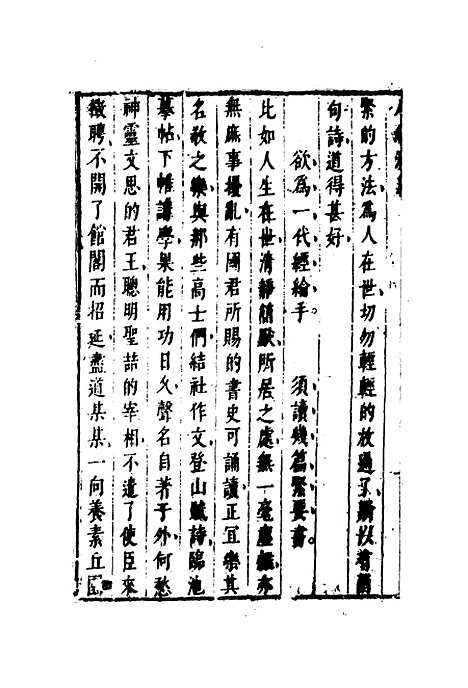 緊的方法爲人在世切勿輕輕的放過了所以有兩
句詩道得甚好
欲爲一代經綸手　須讀幾篇緊要書
比如人生在世清靜幽閒所居之處無一毫塵亦
無庶事擾亂有國君所賜的書史可誦讀正宜樂其
名敎之樂與那些高士們結社作文登山賦詩臨池
摹帖下帷講學果能用功日久聲名自著于外何愁
神靈文思的君王聰明聖喆的宰相不遣了使臣來
徵聘不開了館閣而招延盡道某某一向養素丘園